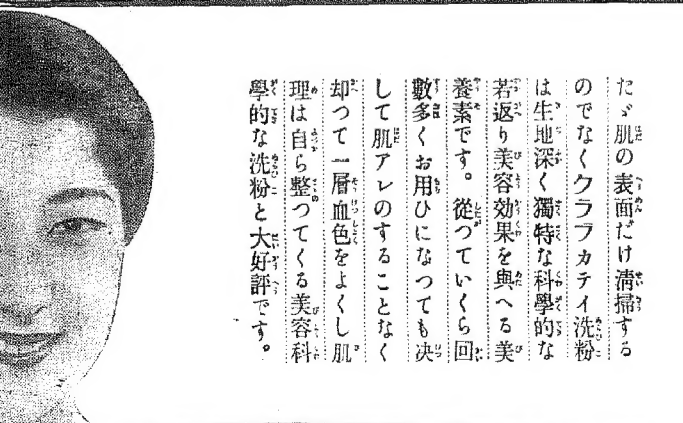 たゞ肌の表面だけ清掃する
のでなくクラブカテイ洗粉
は生地深く獨特な科學的な
若返り美容効果を與へる美
養素です。從つていくら回
數多くお用ひになつても决
して肌アレのすることなく
却つて一層血色をよくし肌
理は自ら整つてくる美容科
學的な洗粉と大好評です。